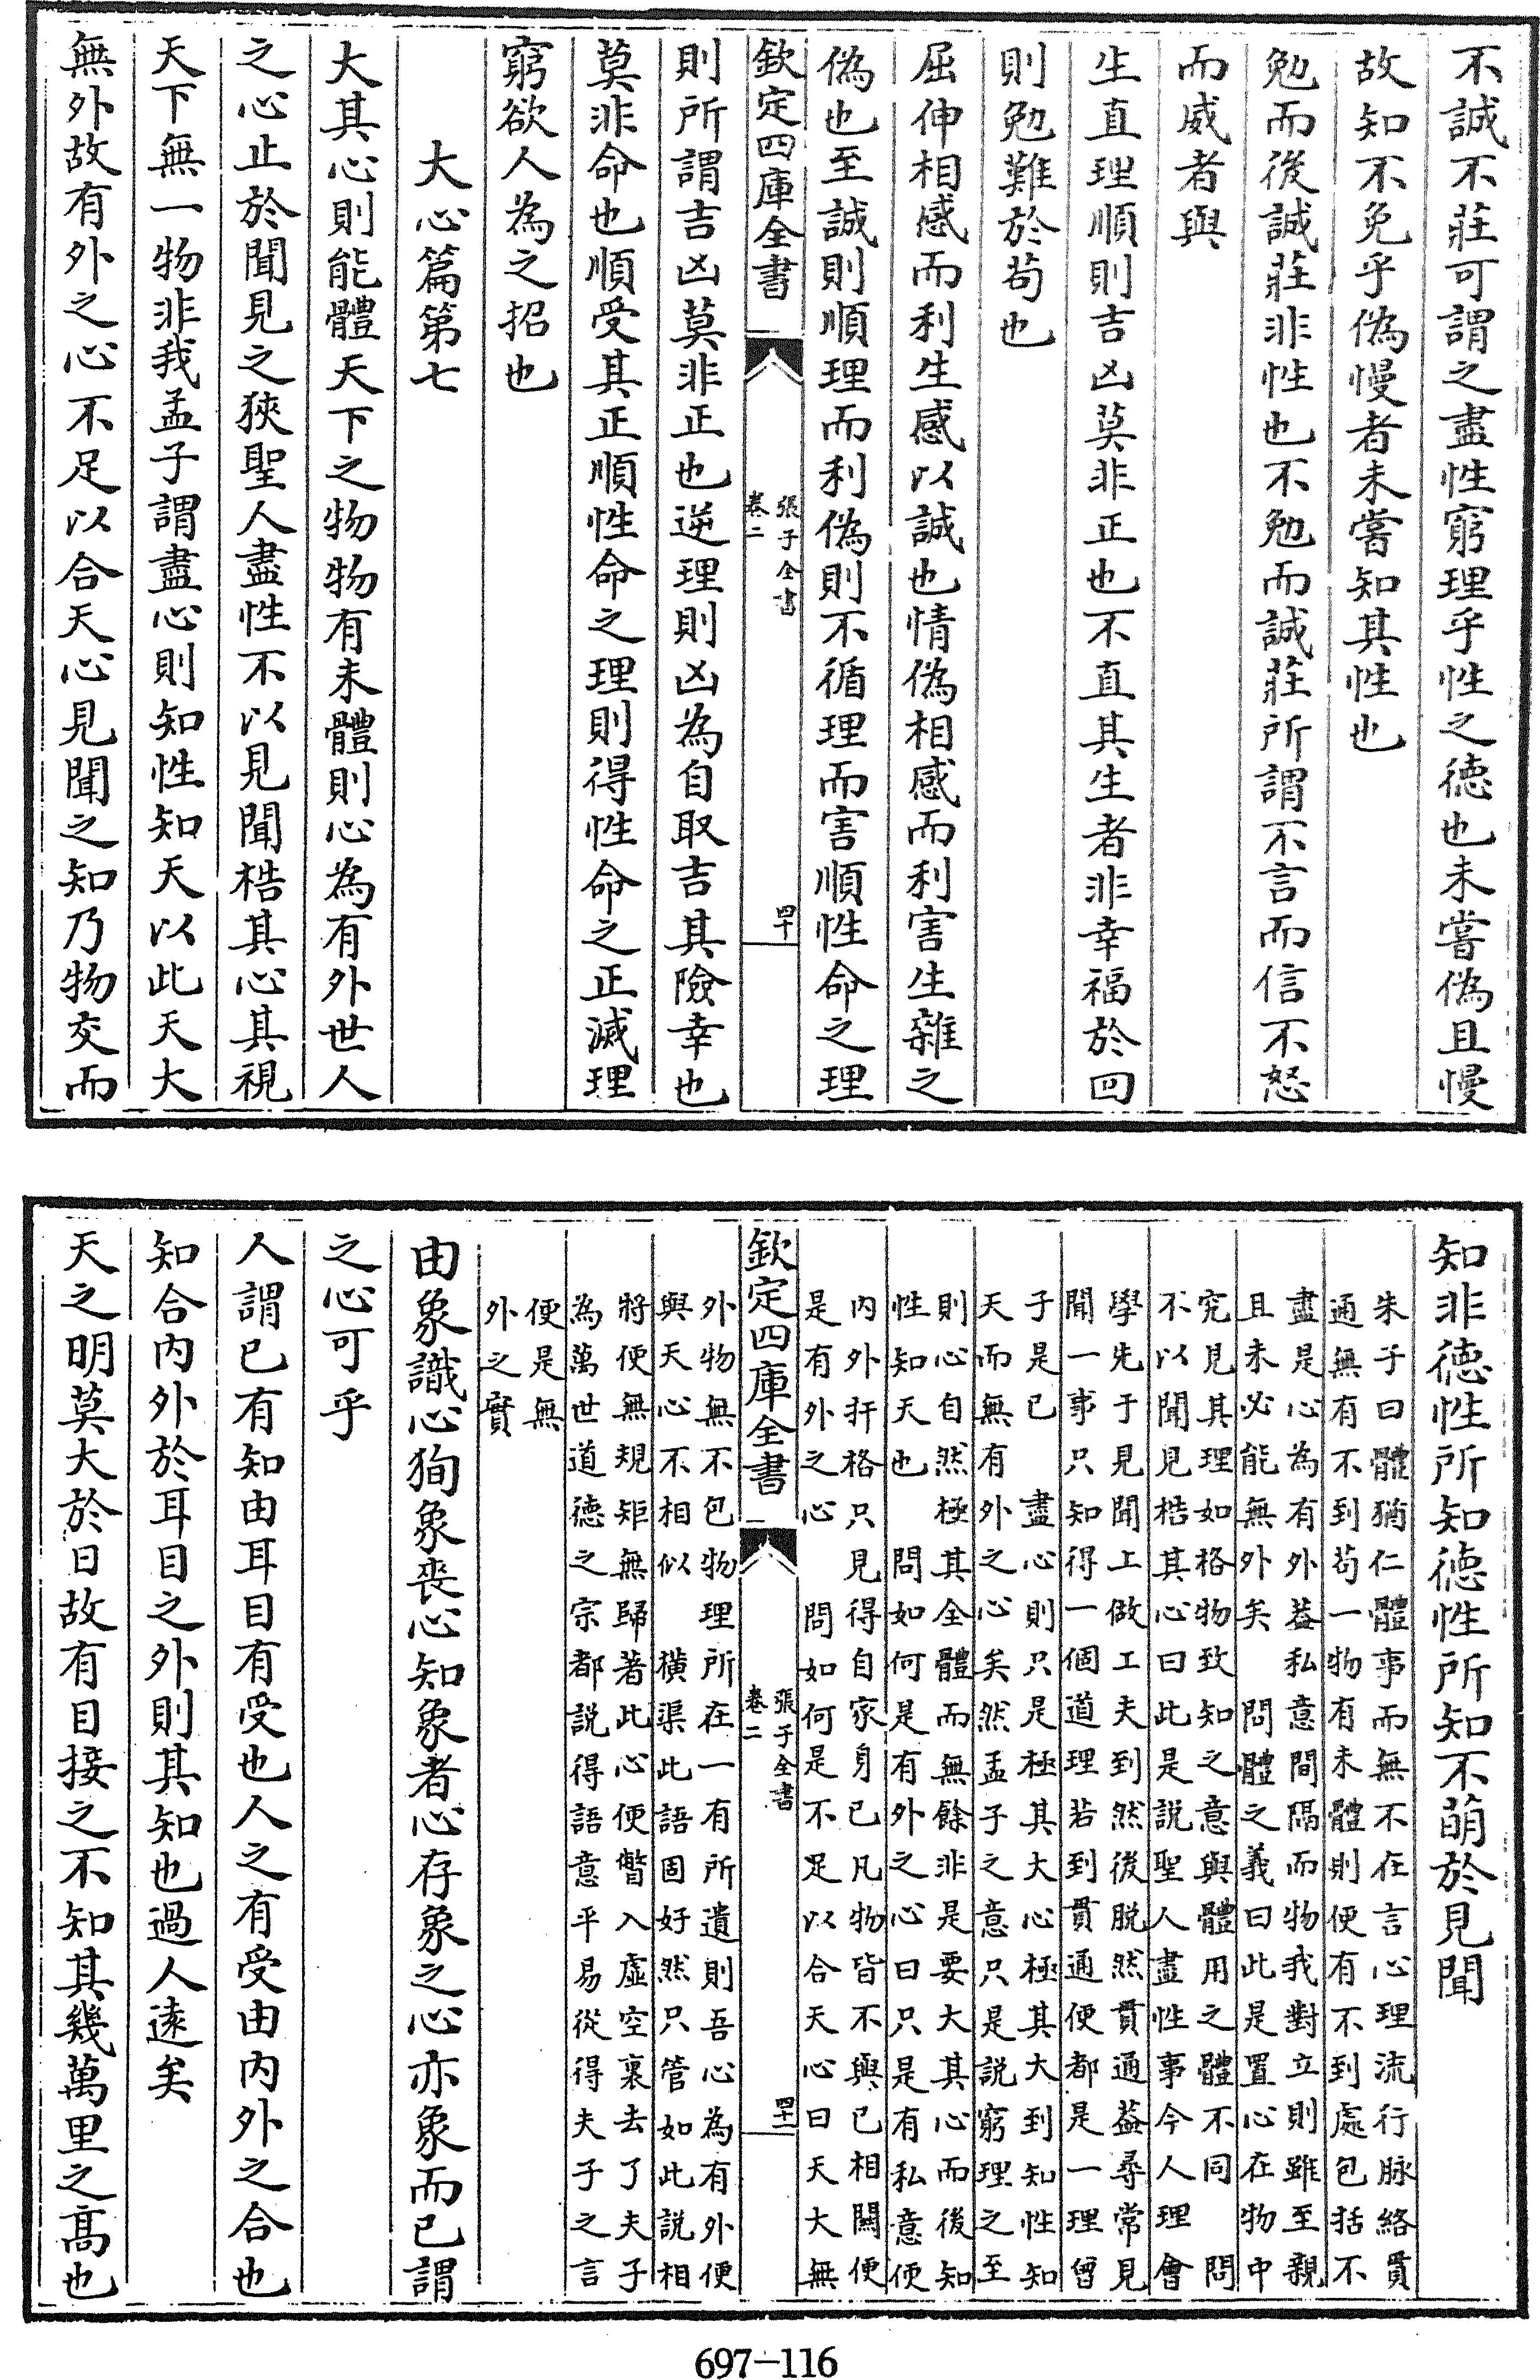 不誠不莊可謂之盡性窮理乎性之徳也未嘗偽且慢
故知不免乎偽慢者未嘗知其性也
勉而後誠莊非性也不勉而誠莊所謂不言而信不怒
而威者與
生直理順則吉凶莫非正也不直其生者非幸福於回
則勉難於苟也
屈伸相感而利生感以誠也情偽相感而利害生雜之
偽也至誠則順理而利偽則不循理而害順性命之理
欽定四庫全書
張子全書
卷二
四十
則所謂吉凶莫非正也逆理則凶為自取吉其險幸也
莫非命也順受其正順性命之理則得性命之正滅理
窮欲人為之招也
大心篇第七
大其心則能體天下之物物有未體則心為有外世人
之心止於聞見之狹聖人盡性不以見聞梏其心其視
天下無一物非我孟子謂盡心則知性知天以此天大
無外故有外之心不足以合天心見聞之知乃物交而
知非徳性所知徳性所知不萌於見聞
朱子曰體猶仁體事而無不在言心理流行脉絡貫
通無有不到苟一物有未體則便有不到處包括不
盡是心為有外葢私意間隔而物我對立則雖至親
且未必能無外矣 問體之義曰此是置心在物中
究見其理如格物致知之意與體用之體不同 問
不以聞見梏其心曰此是説聖人盡性事今人理會
學先于見聞上做工夫到然後脱然貫通葢尋常見
聞一事只知得一個道理若到貫通便都是一理曾
子是已 盡心則只是極其大心極其大到知性知
天而無有外之心矣然孟子之意只是説窮理之至
則心自然極其全體而無餘非是要大其心而後知
性知天也 問如何是有外之心曰只是有私意便
内外扞格只見得自家身已凡物皆不與已相闗便
是有外之心 問如何是不足以合天心曰天大無
欽定四庫全書
張子全書
卷二
四十一
外物無不包物理所在一有所遺則吾心為有外便
與天心不相似 横渠此語固好然只管如此説相
將便無規矩無歸著此心便瞥入虛空裏去了夫子
為萬世道徳之宗都説得語意平易從得夫子之言
便是無
外之實
由象識心狥象喪心知象者心存象之心亦象而已謂
之心可乎
人謂已有知由耳目有受也人之有受由内外之合也
知合内外於耳目之外則其知也過人遠矣
天之明莫大於日故有目接之不知其幾萬里之髙也
697-116